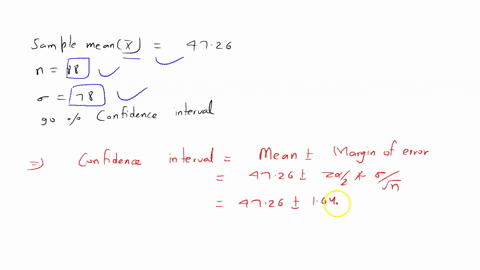 Sample mean (x̄) = 47.26
n = 18
σ = 78
90 % Confidence interval
⇒ Confidence interval = Mean ± Margin of error
= 47.26 ± Zα/2 * σ/√n
= 47.26 ± 1.64